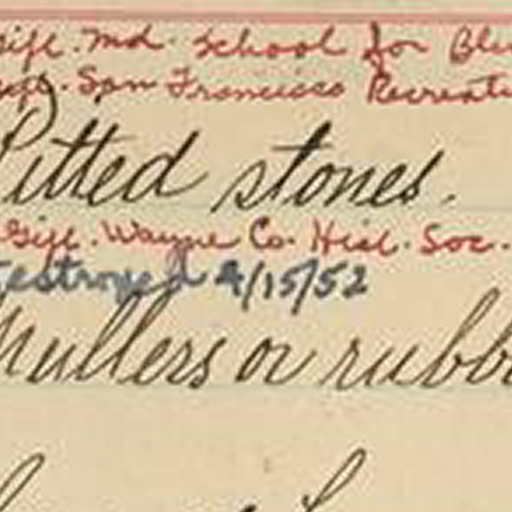 Gift. Md. School for Bli
Gift. San Francisco Recreati
Pitted stones.
Gift. Wayne Co. Hist. Soc.
Destroyed 4/15/52
Mullers or rubb